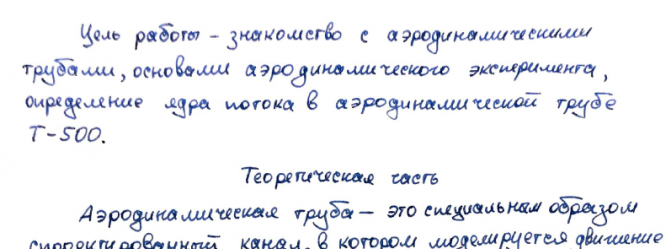 Цель работы – знакомство с аэродинамическими
трубами, основами аэродинамического эксперимента,
определение ядра потока в аэродинамической трубе
Т-500.
Теоретическая часть
Аэродинамическая труба – это специальным образом
спроектированный канал, в котором моделируется движение